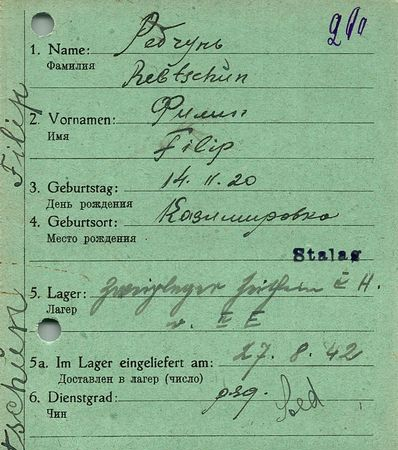 210
1. Name: Редчунь
Фамилия
Retschun
2. Vornamen: Филип
Имя
Filip
3. Geburtstag: 14.11.20
День рождения
4. Geburtsort: Казимировка
Место рождения
Stalag
5. Lager: Zweiglager Zeithain IV H.
Лагер
v. II E
5a. Im Lager eingeliefert am: 27.8.42
Доставлен в лагер (число)
6. Dienstgrad: ряд. Sold
Чин
Filip